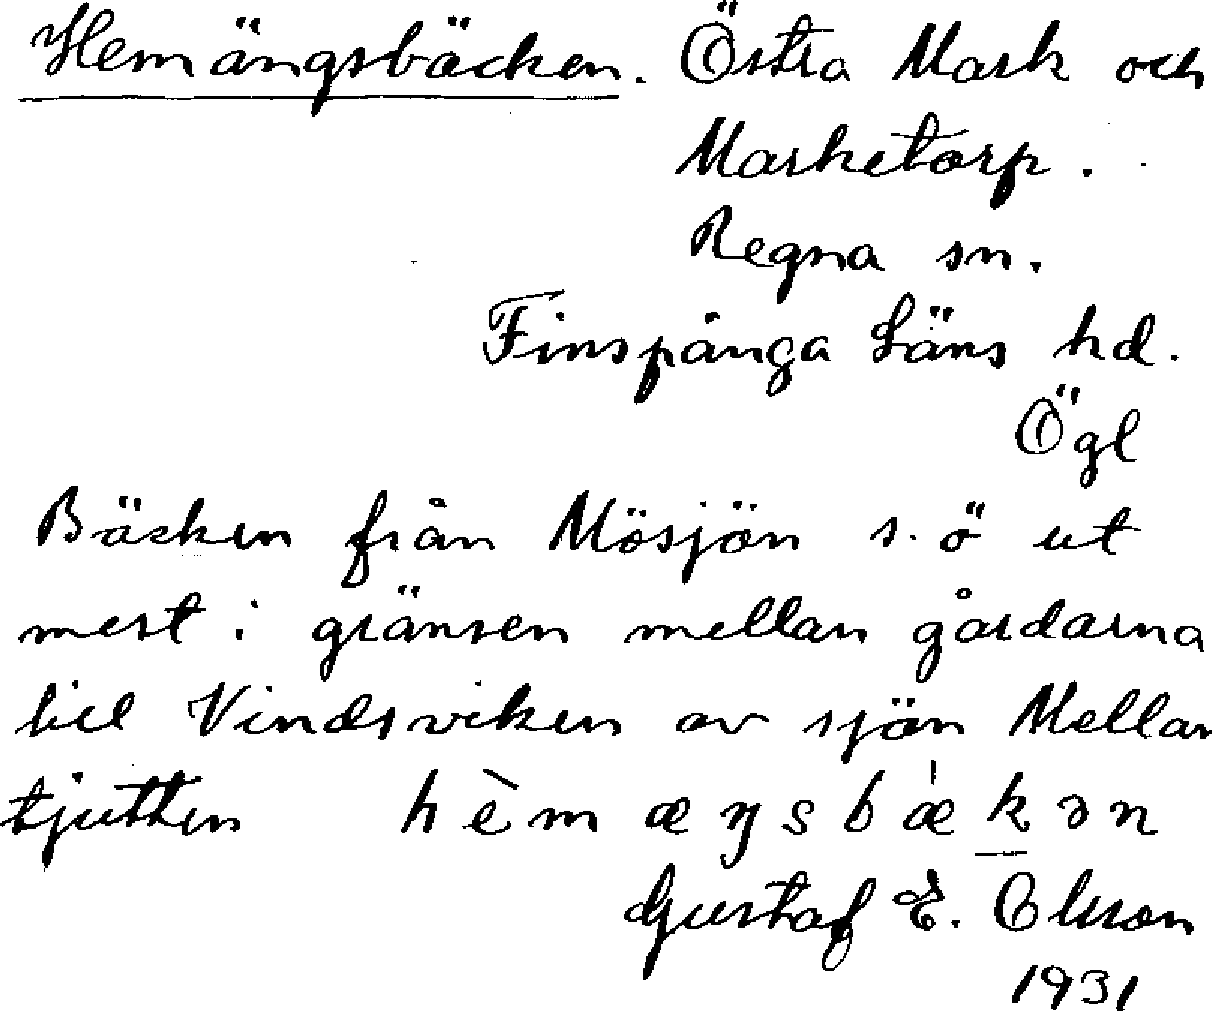 Hemängsbäcken. Östra Mark och
Marketorp.
Regna sn.
Finspånga Läns hd.
Ögl
Bäcken från Mösjön s.ö ut
mest i gränsen mellan gårdarna
till Vindsviken av sjön Mellan
tjutten hèm æŋsbæ̍kən
Gustaf E. Olsson
1931